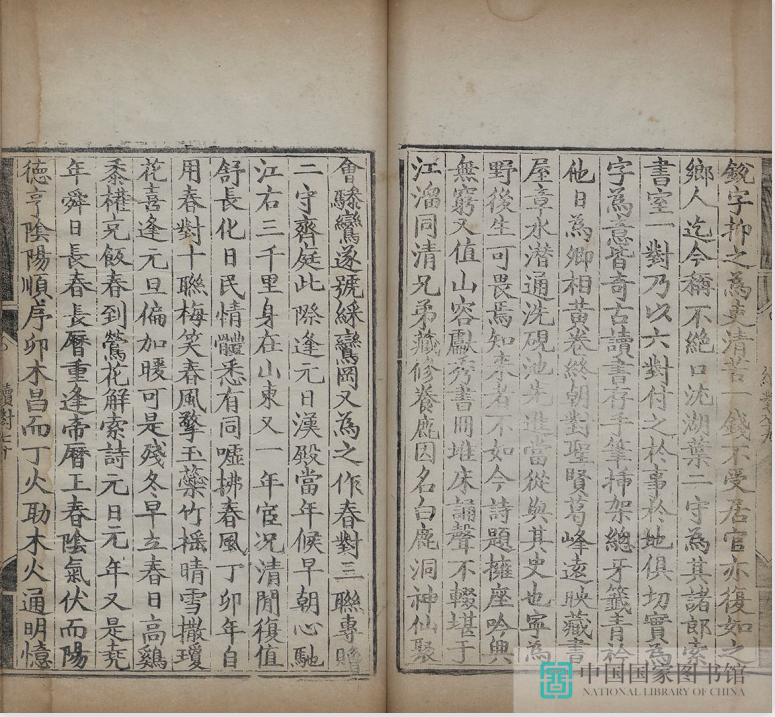 鋭字抑之為吏清苦一錢不受居官亦復如之
鄉人迄今稱不絶口沈湖葉二守為其諸郎索
書室一對乃以六對付之於事於地俱切實為
字為意皆奇古讀書存手筆揷架緫牙籤青衿
他日為卿相黄卷終朝對聖賢葛峰遠映藏書
屋章水潜通洗硯池先進當從與其史也寧為
野後生可畏焉知来者不如今詩題擁座吟興
無窮又值山容獻秀書冊堆床誦聲不輟堪于
江溜同清兄弟藏修養鹿因名白鹿洞神仙聚
會驂鸞遂號綵鸞岡又為之作春對三聯專贈
二守齊庭此際逢元日漢殿當年候早朝心馳
江右三千里身在山東又一年宦况清閒復值
舒長化日民情體悉有同噓拂春風丁卯年自
用春對十聯梅笑春風擎玉蘂竹揺晴雪撒瓊
花喜逢元旦偏加暖可是殘冬早立春日高鷄
黍攙充飯春到鶯花解索詩元日元年又是堯
年舜日長春長曆重逢帝曆王春陰氣伏而陽
徳亨陰陽順序卯木昌而丁火助木火通明憶
續對七十
中国国家图书馆
NATIONAL LIBRARY OF CHINA